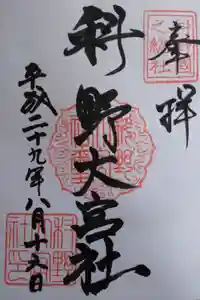 奉拝
科野大宮社
平成二十九年八月十六日